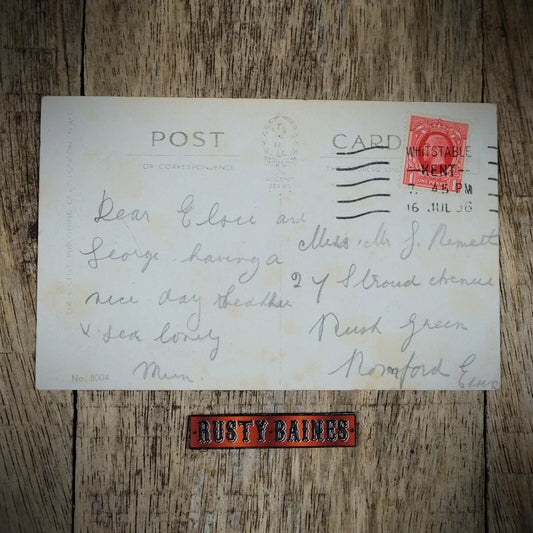 POST CARD
FOR CORRESPONDENCE
REGENT
SERIES
WHITSTABLE
KENT
7. 45 PM
16 JUL 36
1
Dear Elsie and
George having a
nice day weather
x sea lovely
Mum.
Miss. Mr G.
27 Stroud Avenue
Rush Green
Romford Essex
No. 8004
RUSTY·BAINES